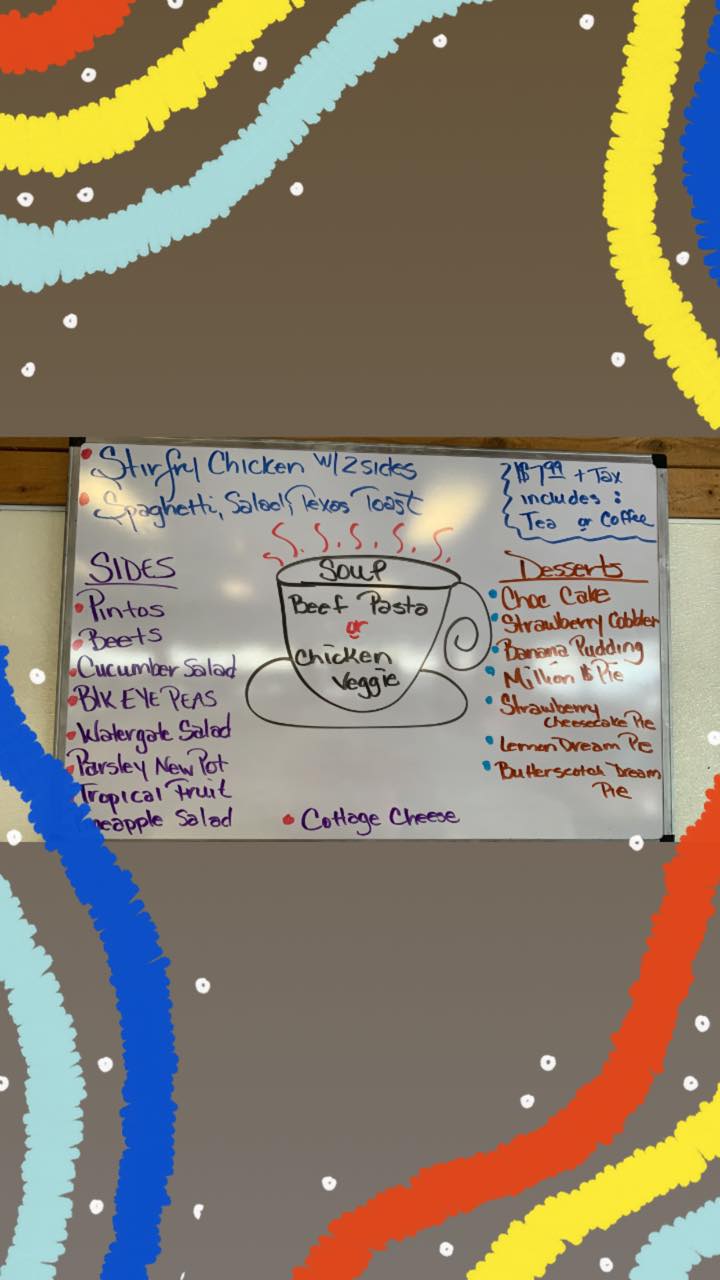 Stirfry Chicken w/2 sides
Spaghetti, Salad, Texas Toast
$7.99 + Tax
includes :
Tea or Coffee
SIDES
Pintos
Beets
Cucumber Salad
BlK EYE PEAS
Watergate Salad
Parsley New Pot
Tropical Fruit
neapple Salad
S. S. S. S. S.
Soup
Beef Pasta
or
Chicken
Veggie
Cottage Cheese
Desserts
Choc Cake
Strawberry Cobbler
Banana Pudding
Million $ Pie
Strawberry
Cheesecake Pie
Lemon Dream Pie
Butterscotch Dream
Pie